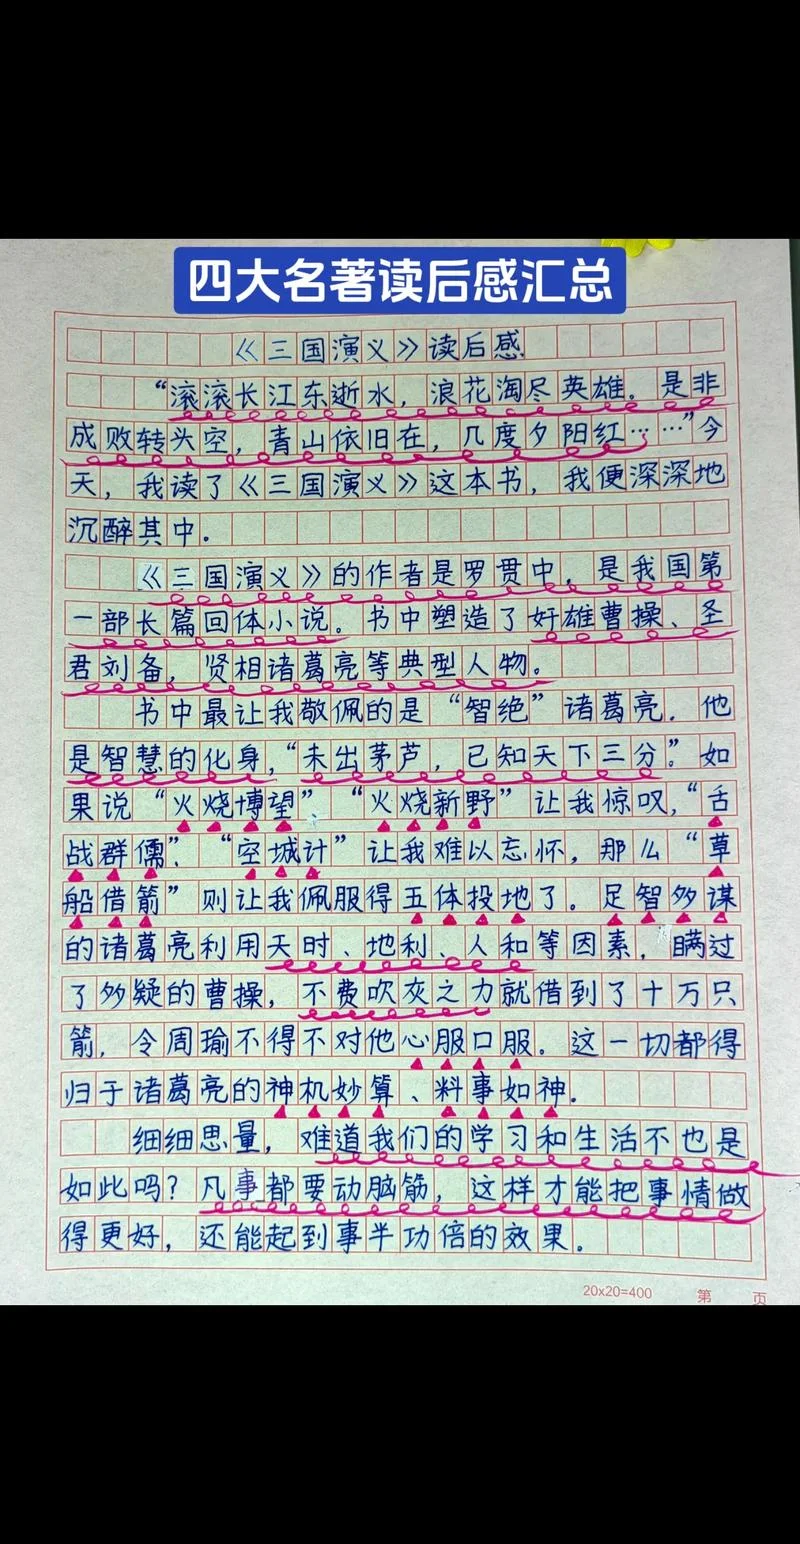 四大名著读后感汇总
《三国演义》读后感
“滚滚长江东逝水，浪花淘尽英雄。是非
成败转头空，青山依旧在，几度夕阳红……”今
天，我读了《三国演义》这本书，我便深深地
沉醉其中。
《三国演义》的作者是罗贯中，是我国第
一部长篇回体小说。书中塑造了奸雄曹操、圣
君刘备，贤相诸葛亮等典型人物。
书中最让我敬佩的是“智绝”诸葛亮．他
是智慧的化身，“未出茅芦，已知天下三分”。如
果说“火烧博望”、“火烧新野”让我惊叹，“舌
战群儒”、“空城计”让我难以忘怀，那么“草
船借箭”则让我佩服得五体投地了。足智多谋
的诸葛亮利用天时、地利、人和等因素，瞒过
了多疑的曹操，不费吹灰之力就借到了十万只
箭，令周瑜不得不对他心服口服。这一切都得
归于诸葛亮的神机妙算、料事如神．
细细思量，难道我们的学习和生活不也是
如此吗？凡事都要动脑筋，这样才能把事情做
得更好，还能起到事半功倍的效果。
20x20=400 第 页